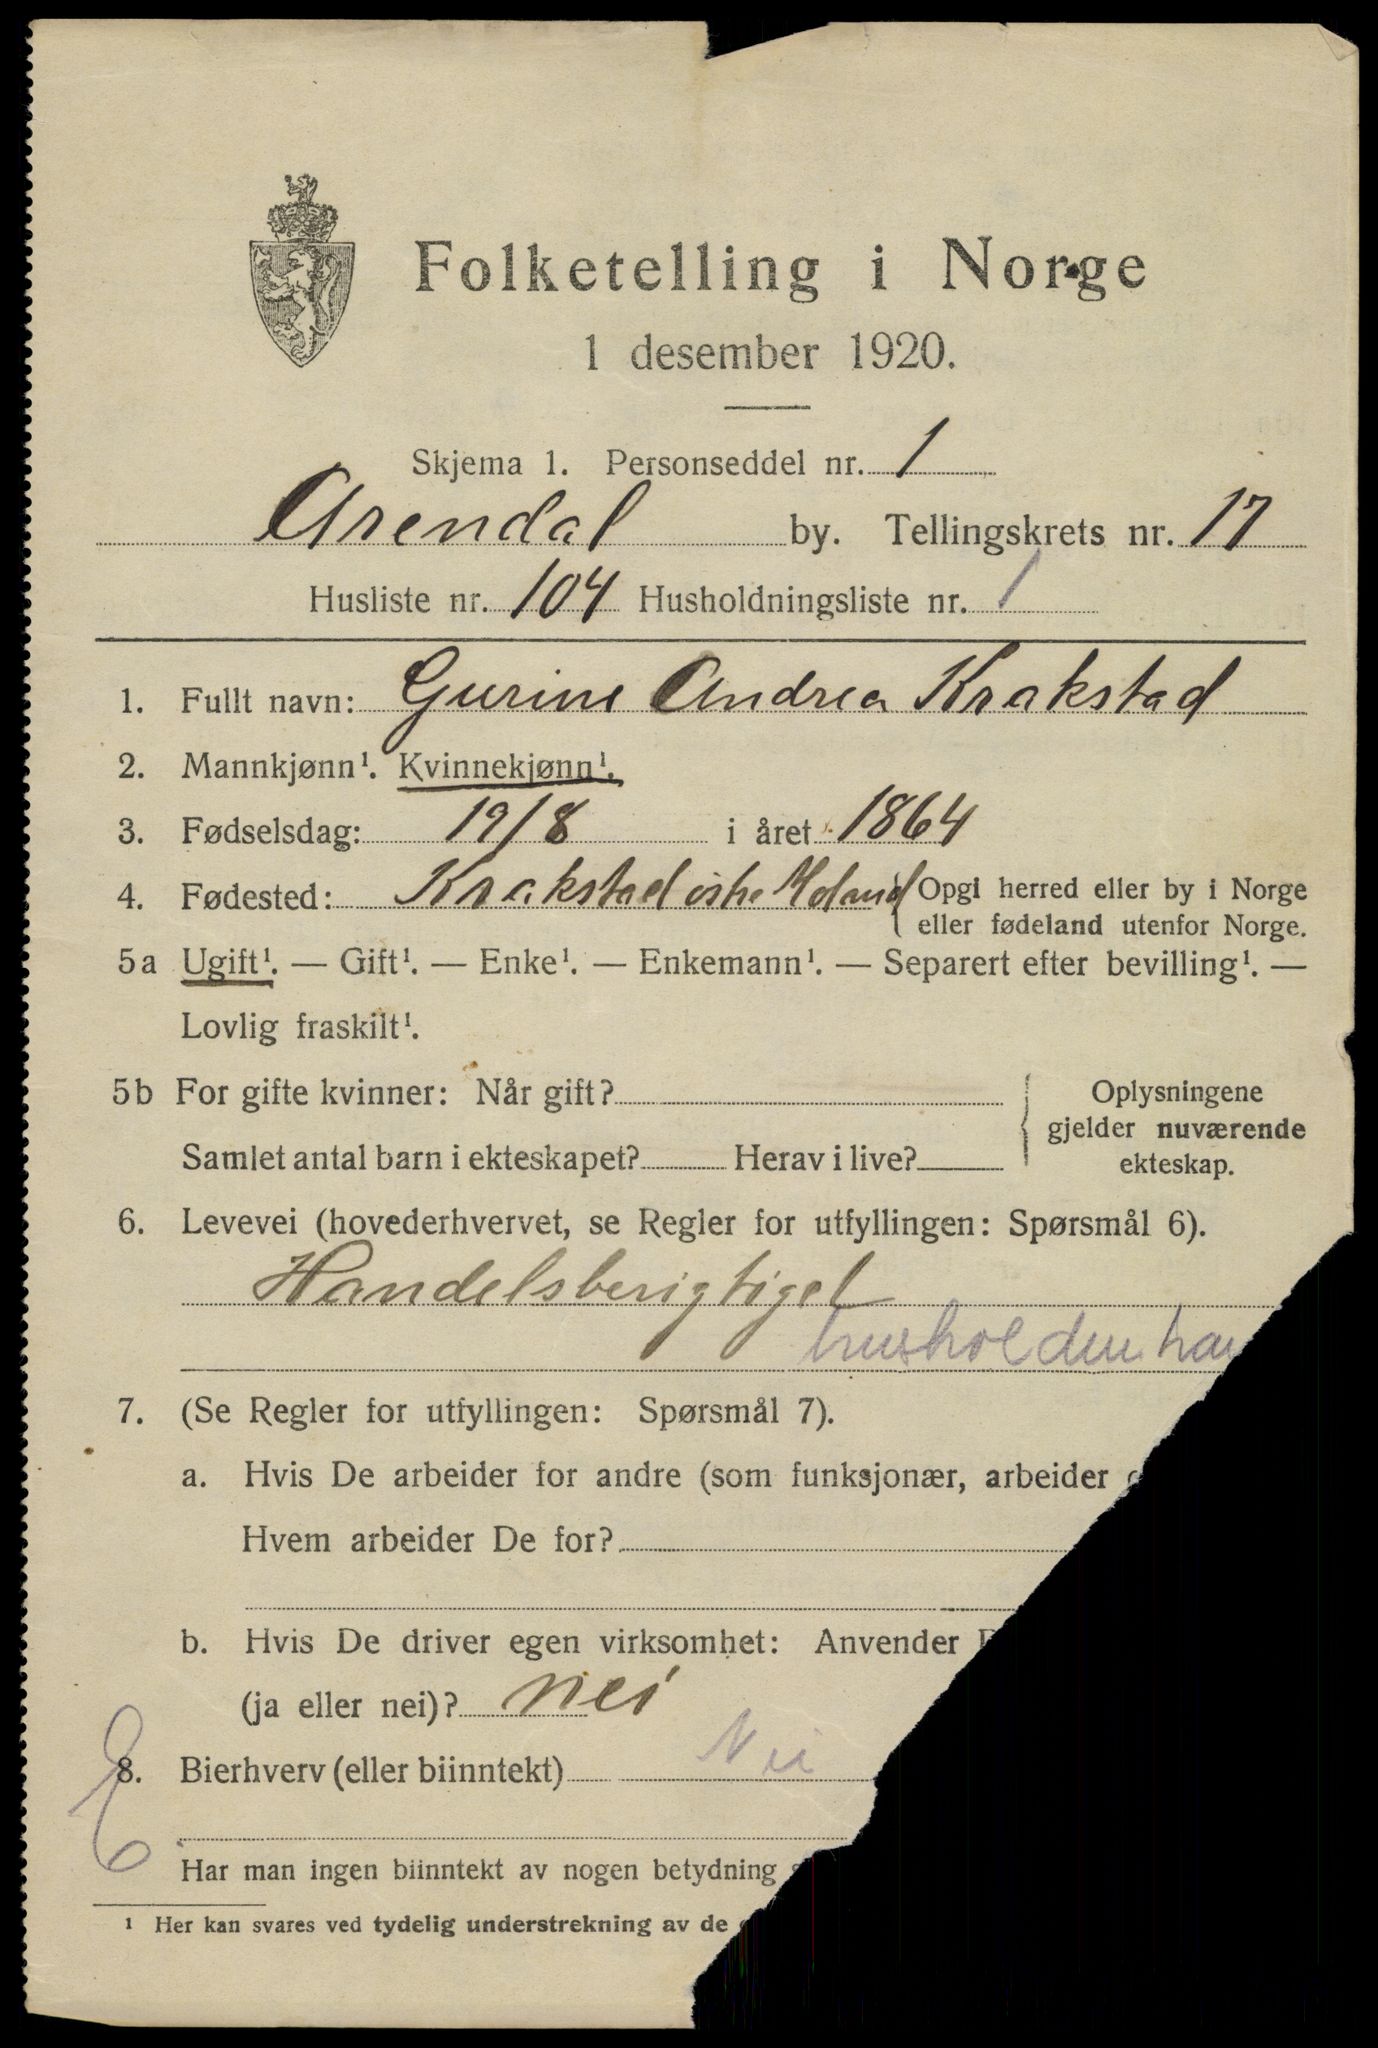 Folketelling i Norge
1 desember 1920.
Skjema 1. Personseddel nr. 1
Arendal by. Tellingskrets nr. 17
Husliste nr. 104 Husholdningsliste nr. 1
1. Fullt navn: Gurine Andrea Krakstad
2. Mannkjønn¹. Kvinnekjønn¹.
3. Fødselsdag: 19/8 i året 1864
4. Fødested: Krakstad østre Moland { Opgi herred eller by i Norge
eller fødeland utenfor Norge.
5a Ugift¹. — Gift¹. — Enke¹. — Enkemann¹. — Separert efter bevilling¹. —
Lovlig fraskilt¹.
5b For gifte kvinner: Når gift?
Samlet antal barn i ekteskapet? Herav i live?
{ Oplysningene
gjelder nuværende
ekteskap.
6. Levevei (hovederhvervet, se Regler for utfyllingen: Spørsmål 6).
Handelsberigtiget
7. (Se Regler for utfyllingen: Spørsmål 7).
a. Hvis De arbeider for andre (som funksjonær, arbeider
Hvem arbeider De for?
b. Hvis De driver egen virksomhet: Anvender
(ja eller nei)? nei
8. Bierhverv (eller biinntekt) Nei
Har man ingen biinntekt av nogen betydning
¹ Her kan svares ved tydelig understrekning av de